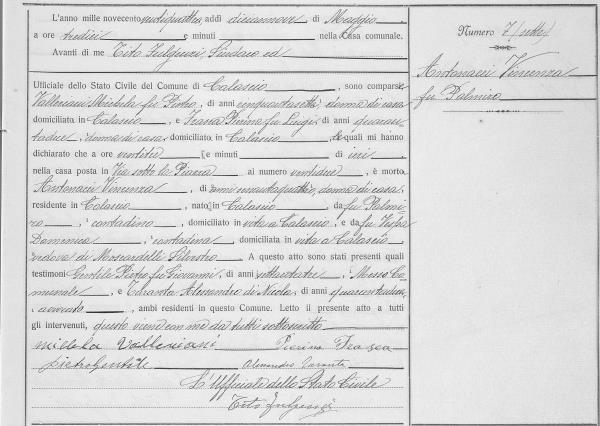 L'anno mille novecento ventiquattro, addì diciannove di Maggio,
a ore tredici e minuti nella Casa comunale.
Avanti di me Tito Fulgenzi, Sindaco ed
Ufficiale dello Stato Civile del Comune di Calascio, sono comparse
Valleriani Michela fu Pietro, di anni cinquantasette, donna di casa
domiciliata in Calascio, e Fasca Pierina fu Luigi, di anni quaran
tadue, donna di casa, domiciliata in Calascio, le quali mi hanno
dichiarato che a ore ventitre e minuti di ieri,
nella casa posta in Via sotto la Piazza al numero ventidue, è morta
Antonacci Vincenza, di anni ottantaquattro, donna di casa,
residente in Calascio, nata in Calascio, da fu Palmi-
ro, contadino, domiciliato in vita a Calascio, e da fu Vespa
Domenica, contadina, domiciliata in vita a Calascio
vedova di Moscardelli Silvestro. A questo atto sono stati presenti quali
testimoni Gentile Pietro fu Giovanni, di anni settantatre, Messo Co-
munale, e Taranta Alessandro di Nicola, di anni quarantadue,
avvocato, ambi residenti in questo Comune. Letto il presente atto a tutti
gli intervenuti, questo viene con me da tutti sottoscritto
Michela Valleriani Pierina Fasca
Pietro Gentile Alessandro Taranta
L'Ufficiale dello Stato Civile
Tito Fulgenzi
Numero 7 (sette)
Antonacci Vincenza
fu Palmiro